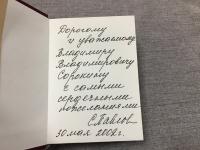 Дорогому
и уважаемому
Владимиру
Владимировичу
Сорокину
с самыми
сердечными
пожеланиями
30 мая 2002г.